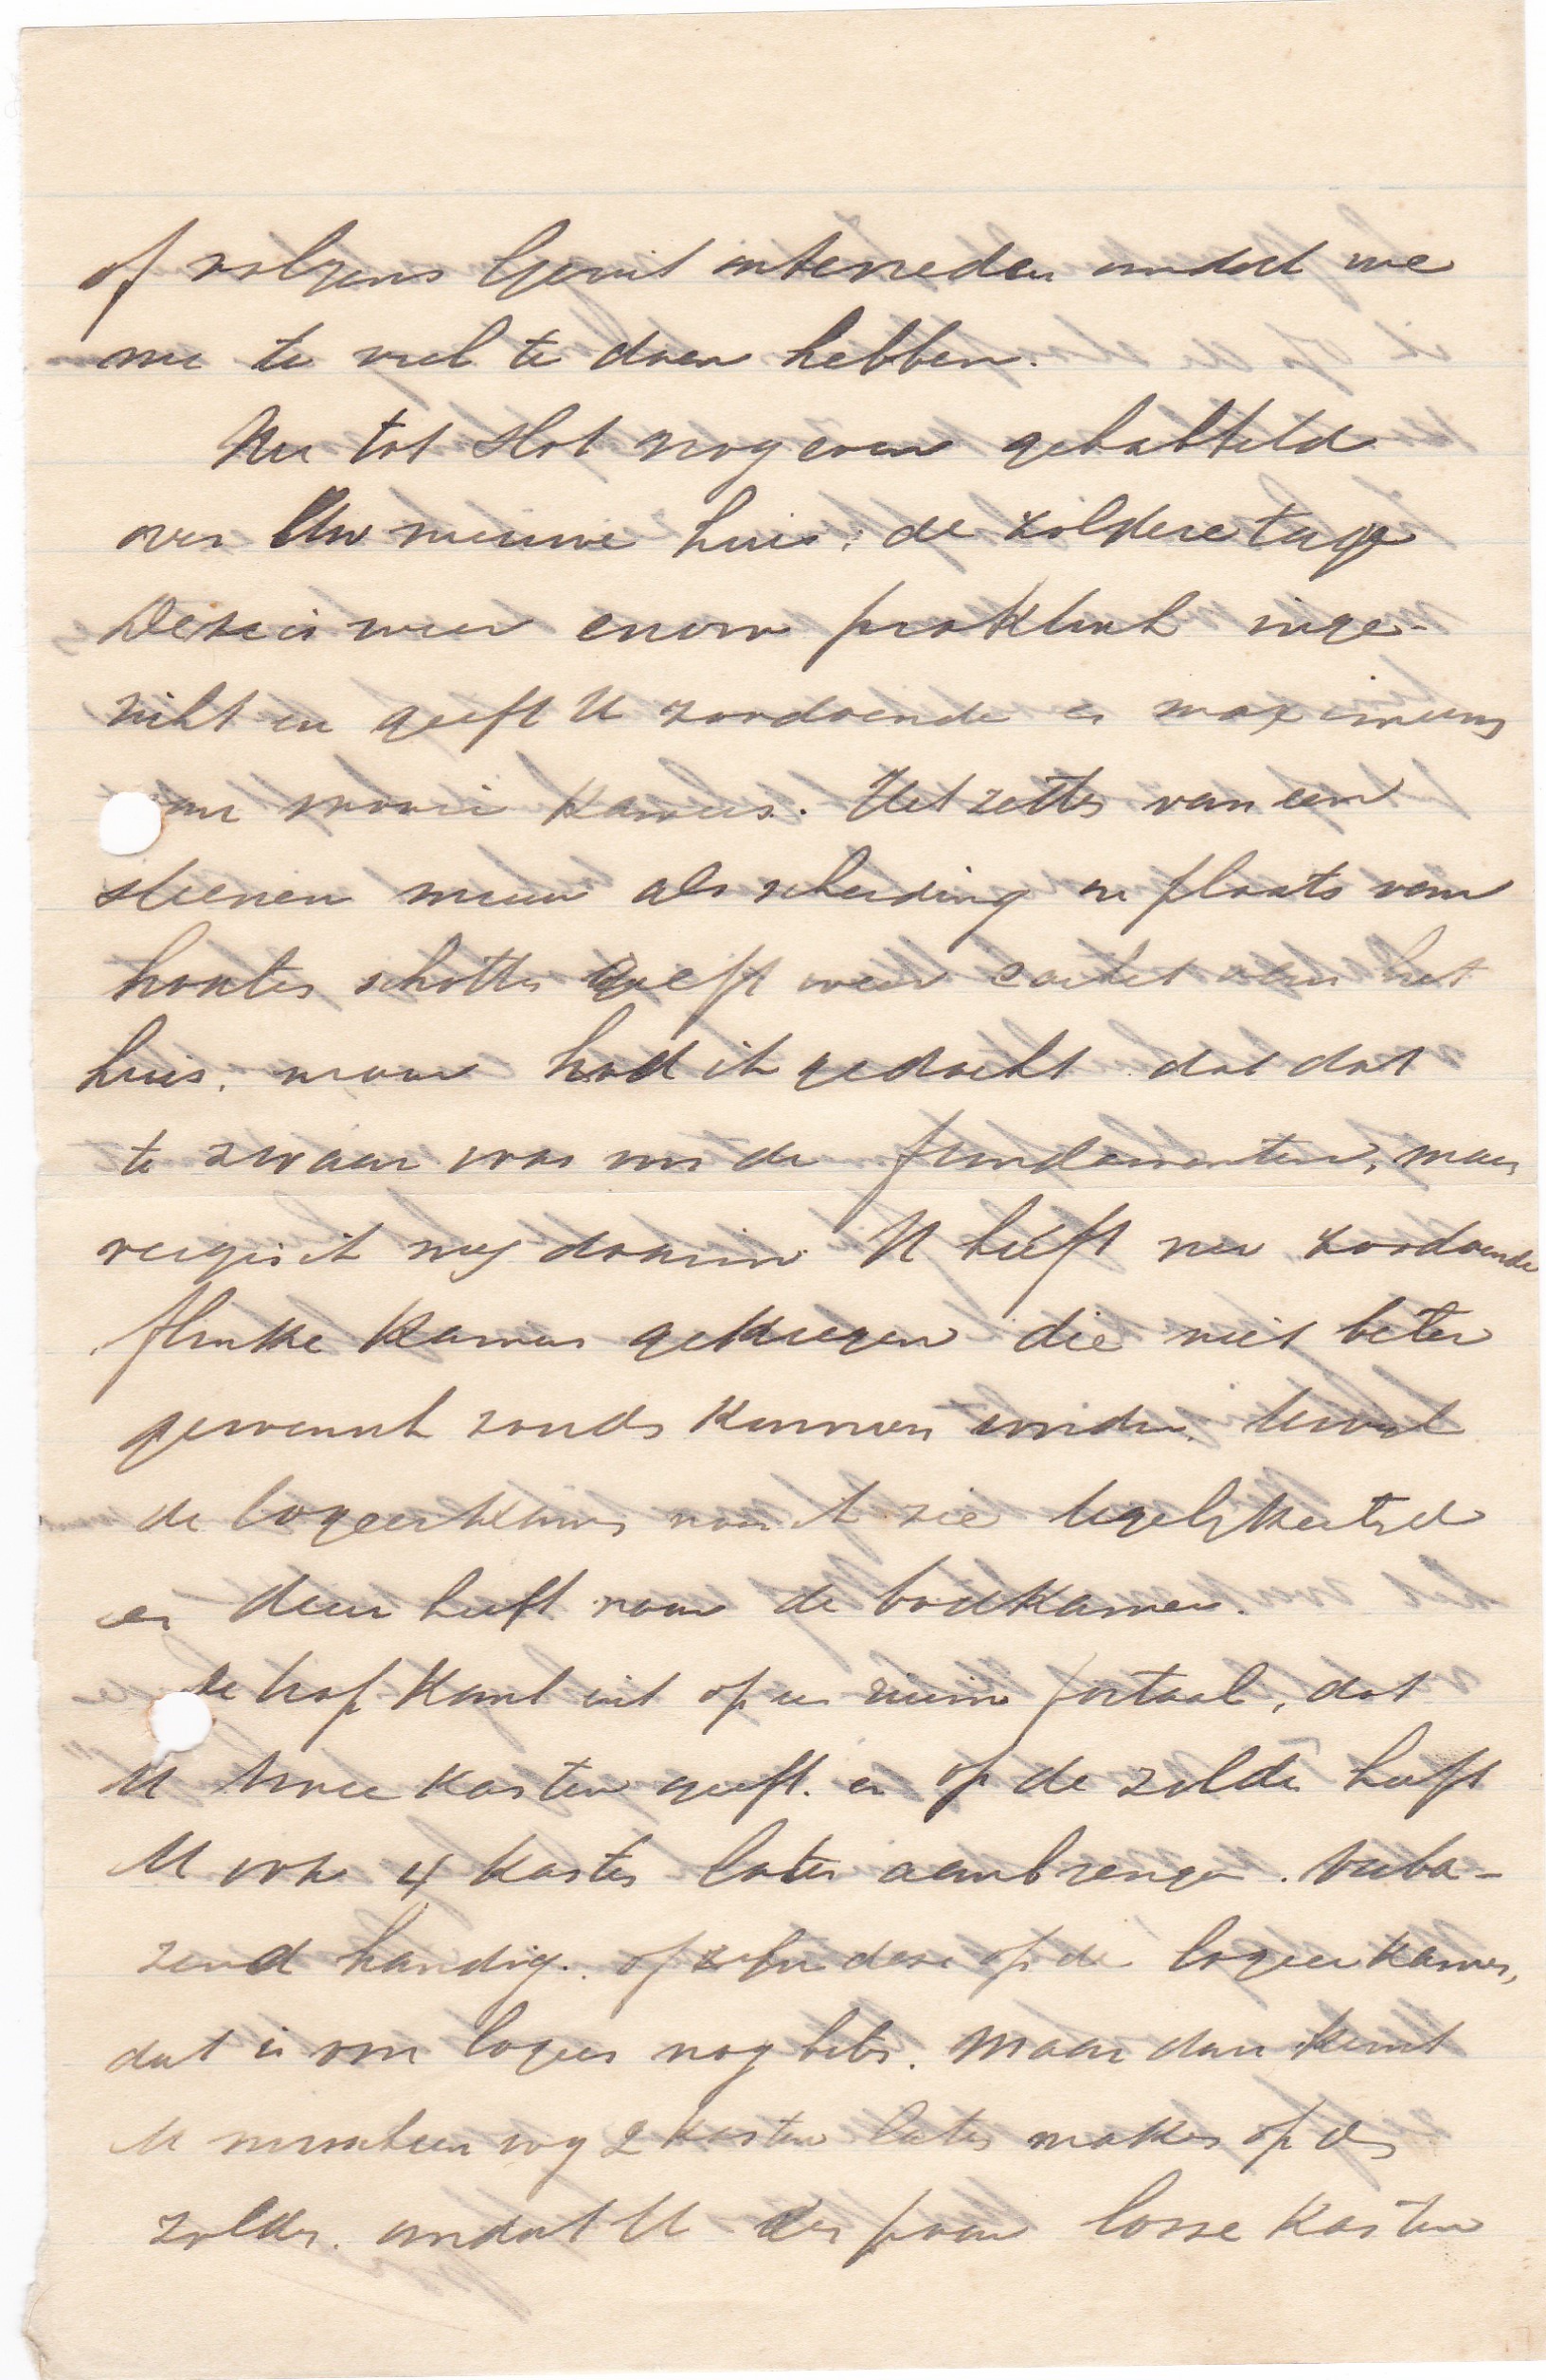 of volgens Gerrit ontevreden omdat we
nu te veel te doen hebben.
Nu tot slot nog even gebabbeld
over Uw nieuwe huis: de zolderetage
Deze is weer enorm praktisch inge-
richt en geeft U zoodoende een maximum
van mooie kamers. Het zetten van een
steenen muur als scheiding in plaats van
houten schotten geeft weer cachet aan het
huis. maar had ik gedacht dat dat
te zwaar was voor de fundamenten, maar
vergis ik mij daarin. U heeft nu zoodoende
flinke kamers gekregen die niet beter
gewenscht zouden kunnen worden. terwijl
de logeerkamer naar ik zie tegelijkertijd
een deur heeft naar de badkamer.
De trap komt uit op een ruim portaal, dat
U twee kasten geeft. en op de zolder heeft
U ook 4 kasten laten aanbrengen. Verba-
zend handig. of zijn deze op de logeerkamer,
dat is voor logees nog beter. Maar dan kunt
U misschien nog 2 kasten laten maken op de
zolder. omdat U een paar losse kasten